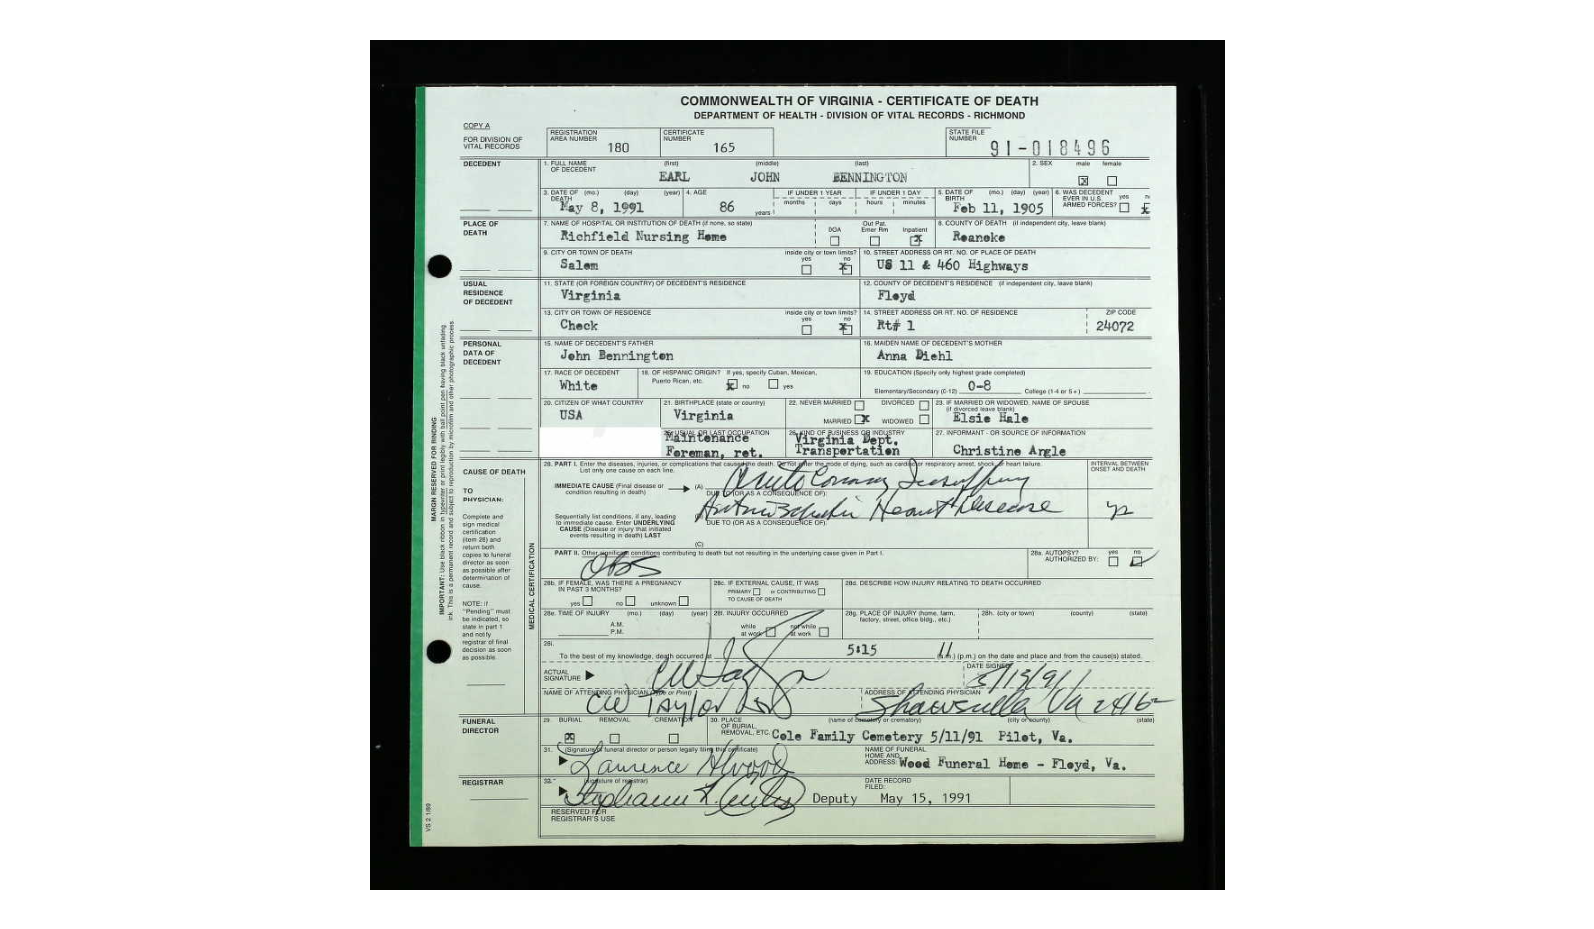 COMMONWEALTH OF VIRGINIA - CERTIFICATE OF DEATH
DEPARTMENT OF HEALTH - DIVISION OF VITAL RECORDS - RICHMOND
COPY A
FOR DIVISION OF VITAL RECORDS
REGISTRATION AREA NUMBER 180
CERTIFICATE NUMBER 165
STATE FILE NUMBER 91-018496
DECEDENT
1. FULL NAME OF DECEDENT (first) (middle) (last)
EARL JOHN BENNINGTON
2. SEX male female
X
3. DATE OF DEATH (mo.) (day) (year)
May 8, 1991
4. AGE
86 years
IF UNDER 1 YEAR months days
IF UNDER 1 DAY hours minutes
5. DATE OF BIRTH (mo.) (day) (year)
Feb 11, 1905
6. WAS DECEDENT EVER IN U.S. ARMED FORCES? yes
X
PLACE OF DEATH
7. NAME OF HOSPITAL OR INSTITUTION OF DEATH (if none, so state)
Richfield Nursing Home
DOA
Out Pat. Emer Rm
Inpatient X
8. COUNTY OF DEATH (if independent city, leave blank)
Roanoke
9. CITY OR TOWN OF DEATH
Salem
inside city or town limits? yes no
X
10. STREET ADDRESS OR RT. NO. OF PLACE OF DEATH
US 11 & 460 Highways
USUAL RESIDENCE OF DECEDENT
11. STATE (OR FOREIGN COUNTRY) OF DECEDENT'S RESIDENCE
Virginia
12. COUNTY OF DECEDENT'S RESIDENCE (if independent city, leave blank)
Floyd
13. CITY OR TOWN OF RESIDENCE
Check
inside city or town limits? yes no
X
14. STREET ADDRESS OR RT. NO. OF RESIDENCE
Rt# 1
ZIP CODE
24072
PERSONAL DATA OF DECEDENT
15. NAME OF DECEDENT'S FATHER
John Bennington
16. MAIDEN NAME OF DECEDENT'S MOTHER
Anna Diehl
17. RACE OF DECEDENT
White
18. OF HISPANIC ORIGIN? If yes, specify Cuban, Mexican, Puerto Rican, etc.
X no yes
19. EDUCATION (Specify only highest grade completed)
Elementary/Secondary (0-12) 0-8 College (1-4 or 5+)
20. CITIZEN OF WHAT COUNTRY
USA
21. BIRTHPLACE (state or country)
Virginia
22. NEVER MARRIED DIVORCED
MARRIED X WIDOWED
23. IF MARRIED OR WIDOWED, NAME OF SPOUSE (if divorced leave blank)
Elsie Hale
USUAL OR LAST OCCUPATION
Maintenance
Foreman, ret.
26. KIND OF BUSINESS OR INDUSTRY
Virginia Dept.
Transportation
27. INFORMANT - OR SOURCE OF INFORMATION
Christine Angle
CAUSE OF DEATH
TO PHYSICIAN:
Complete and sign medical certification (item 28) and return both copies to funeral director as soon as possible after determination of cause.
NOTE: If "Pending" must be indicated, so state in part 1 and notify registrar of final decision as soon as possible.
MEDICAL CERTIFICATION
28. PART I. Enter the diseases, injuries, or complications that caused the death. Do not enter the mode of dying, such as cardiac or respiratory arrest, shock, or heart failure.
List only one cause on each line.
INTERVAL BETWEEN ONSET AND DEATH
IMMEDIATE CAUSE (Final disease or condition resulting in death)
(A)
DUE TO (OR AS A CONSEQUENCE OF):
Heart Disease
Sequentially list conditions, if any, leading to immediate cause. Enter UNDERLYING CAUSE (Disease or injury that initiated events resulting in death) LAST
DUE TO (OR AS A CONSEQUENCE OF):
(C)
PART II. Other significant conditions contributing to death but not resulting in the underlying cause given in Part I.
28a. AUTOPSY? AUTHORIZED BY: yes no
28b. IF FEMALE, WAS THERE A PREGNANCY IN PAST 3 MONTHS?
yes no unknown
28c. IF EXTERNAL CAUSE, IT WAS
PRIMARY or CONTRIBUTING
TO CAUSE OF DEATH
28d. DESCRIBE HOW INJURY RELATING TO DEATH OCCURRED
28e. TIME OF INJURY (mo.) (day) (year)
A.M.
P.M.
28f. INJURY OCCURRED
while at work not while at work
28g. PLACE OF INJURY (home, farm, factory, street, office bldg., etc.)
28h. (city or town) (county) (state)
28i.
To the best of my knowledge, death occurred at 5:15 (a.m.) (p.m.) on the date and place and from the cause(s) stated.
ACTUAL SIGNATURE
DATE SIGNED
5/13/91
NAME OF ATTENDING PHYSICIAN (Type or Print)
CW Taylor
ADDRESS OF ATTENDING PHYSICIAN
Shawsville Va 24162
FUNERAL DIRECTOR
29. BURIAL REMOVAL CREMATION
X
30. PLACE OF BURIAL, REMOVAL, ETC. (name of cemetery or crematory) (city or county) (state)
Cole Family Cemetery 5/11/91 Pilot, Va.
31. (Signature of funeral director or person legally filing this certificate)
Laurence
NAME OF FUNERAL HOME AND ADDRESS:
Wood Funeral Home - Floyd, Va.
REGISTRAR
32. (signature of registrar)
Deputy
DATE RECORD FILED:
May 15, 1991
RESERVED FOR REGISTRAR'S USE
VS 2 1/89
MARGIN RESERVED FOR BINDING
IMPORTANT: Use black ribbon in typewriter or print legibly with ball point pen having black unfading ink. This is a permanent record and subject to reproduction by microfilm and other photographic process